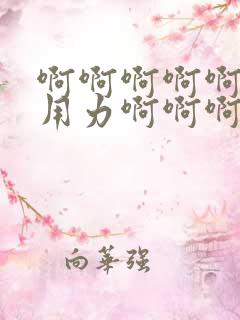 啊啊啊啊啊
用力啊啊啊
向華强